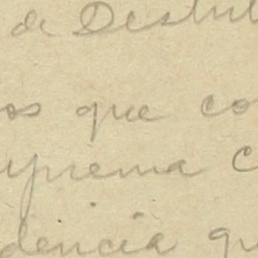 de Destit
os que co
uprema C
dencia qu